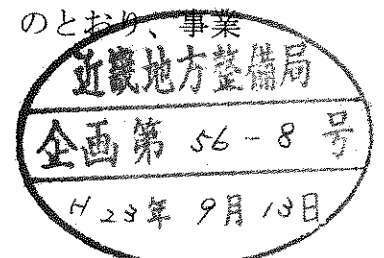 のとおり、事業
近畿地方整備局
企画第 56-8 号
H23年 9月13日